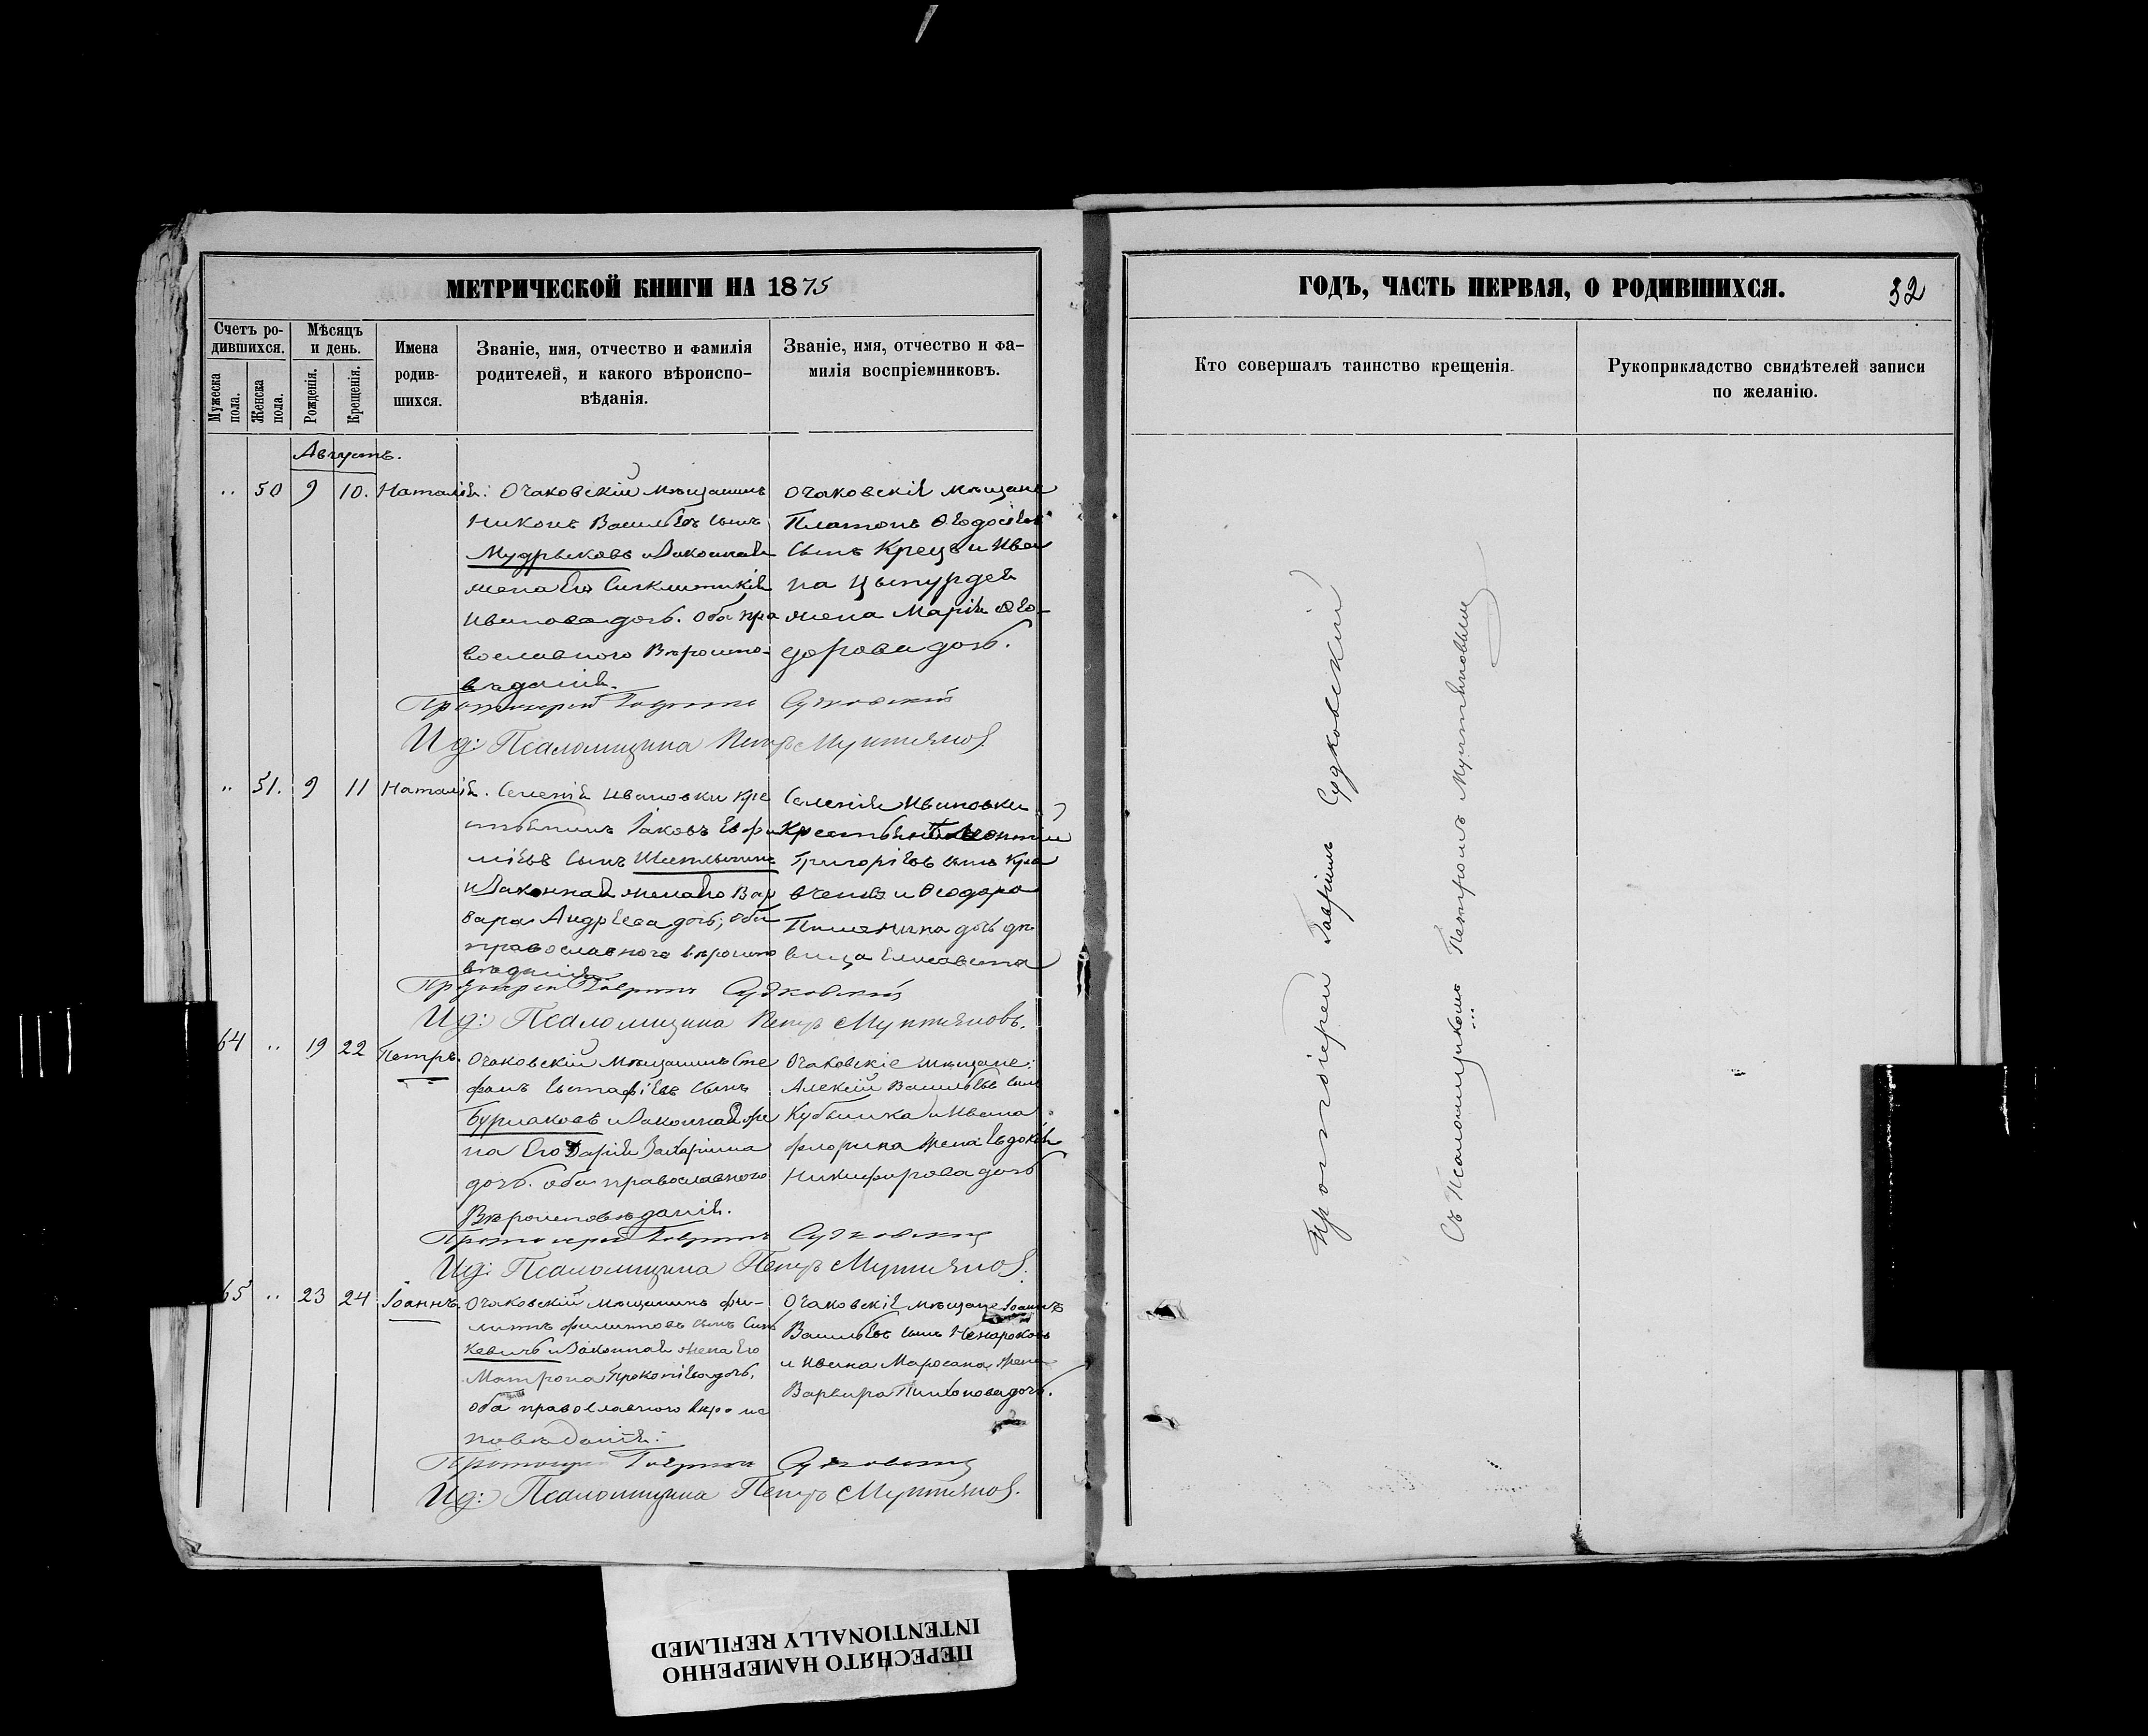 МЕТРИЧЕСКОЙ КНИГИ НА 1875
Счетъ ро-
дившихся.
Мѣсяцъ
и день.
Мужеска
пола.
Женска
пола.
Рожденія.
Крещенія.
Имена
родив-
шихся.
Званіе, имя, отчество и фамилія
родителей, и какого вѣроиспо-
вѣданія.
Званіе, имя, отчество и фа-
милія воспріемниковъ.
Августъ.
.. 50 9 10. Наталія.
Очаковскій мѣщанинъ
Никонъ Васильевъ сынъ
Мудрыковъ и законная
жена его
Иванова дочь. Оба пра
вославнаго вѣроиспо-
вѣданія.
Очаковскіе мѣщане
Платонъ Ѳеодосіевъ
сынъ Крецъ и Ива
на Цынурдея
жена Марія Ѳео-
дорова дочь.
Протоіерей Гавріилъ Судковскій
И д: Псаломщика Петръ Мунтяновъ
.. 51. 9 11 Наталія.
Селенія Ивановки кре
стьянинъ Іаковъ Евфи
міевъ сынъ
и законная жена его Вар
вара Андреева дочь; оба
православнаго вѣроиспо
вѣданія
Селенія Ивановки
Крестьяне Леонтій
Григоріевъ сынъ Кра
вченко и Ѳеодора
дочь дѣ
вица Елисавета
Протоіерей Гавріилъ Судковскій
И д: Псаломщика Петръ Мунтяновъ.
64 .. 19 22 Петръ.
Очаковскій мѣщанинъ Сте
фанъ Евстафіевъ сынъ
Бурлаковъ и законная же
на его Дарія Захаріина
дочь. оба православнаго
Вѣроисповѣданія.
Очаковскіе мѣщане:
Алексій Васильевъ сынъ
Кубышка и Ивана
Флорина жена Евдокія
Никифорова дочь
Протоіерей Гавріилъ Судковскій
И д: Псаломщика Петръ Мунтяновъ.
65 .. 23 24 Іоаннъ
Очаковскій мѣщанинъ Фи-
липпъ Филипповъ сынъ Синь
кевичъ и Законная жена его
Матрона Прокопіева дочь,
оба православнаго вѣроис
повѣданія:
Очаковскіе мѣщане Іоаннъ
Васильевъ сынъ Ненароковъ
и Ивана Маросана жена
Варвара дочь.
Протоіерей Гавріилъ Судковскій
И д: Псаломщика Петръ Мунтяновъ.
ГОДЪ, ЧАСТЬ ПЕРВАЯ, О РОДИВШИХСЯ.
32
Кто совершалъ таинство крещенія.
Рукоприкладство свидѣтелей записи
по желанію.
Протоіерей Гавріилъ Судковскій
Съ Псаломщикомъ Петромъ Мунтяновымъ
ПЕРЕСНЯТО НАМЕРЕННО
INTENTIONALLY REFILMED